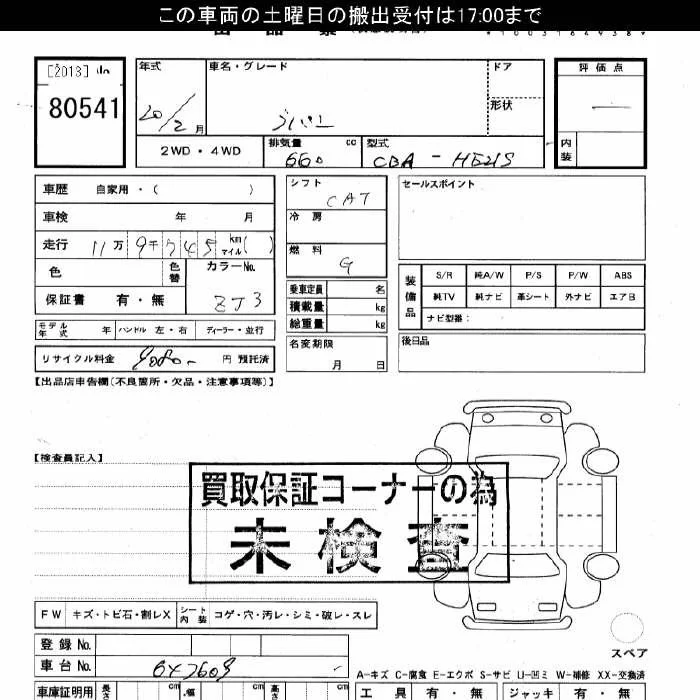 この車両の土曜日の搬出受付は17:00まで
[2013]
80541
年式 車名・グレード ドア 評価点
20/2月 形状
2WD・4WD 排気量 cc 型式 内装
660 CBA-HE21S
車歴 自家用・( )
シフト CAT セールスポイント
車検 年 月
冷房
走行 11万9千745 km マイル( )
燃料 G
色 色替 カラーNo. ZJ3
保証書 有・無
乗車定員 名
積載量 kg
総重量 kg
装備品 S/R 純A/W P/S P/W ABS
純TV 純ナビ 革シート 外ナビ エアB
ナビ型番:
モデル年式 年 ハンドル 左・右 ディーラー・並行
名変期限 月 日
後日品
リサイクル料金 円 預託済
【出品店申告欄(不良箇所・欠品・注意事項等)】
【検査員記入】
買取保証コーナーの為
未検査
FW キズ・トビ石・割レX シート内装 コゲ・穴・汚レ・シミ・破レ・スレ
登録No.
スペア
車台No.
A-キズ C-腐食 E-エクボ S-サビ U-凹ミ W-補修 XX-交換済
車庫証明用 長さ cm 幅 cm 高さ cm 工具 有・無 ジャッキ 有・無